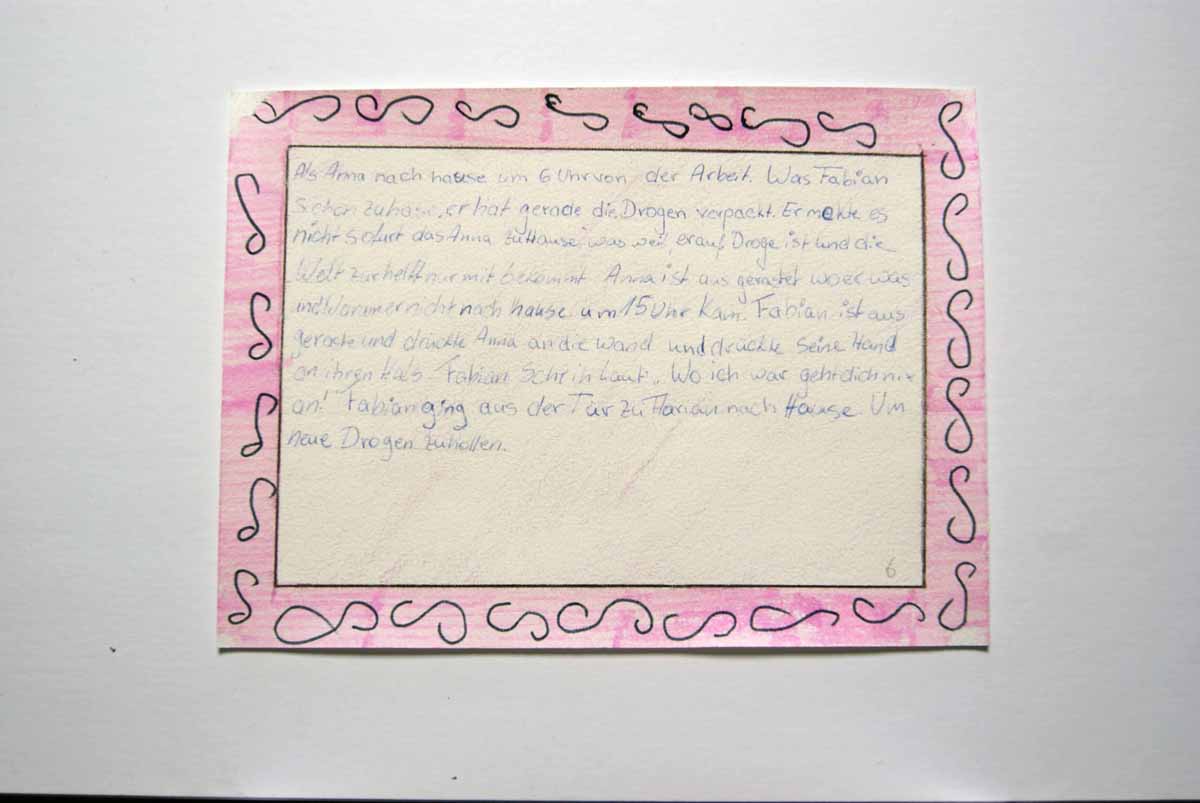 Als Anna nach hause um 6 Uhr von der Arbeit. Was Fabian
schon zuhase, er hat gerade die Drogen verpackt. Er mekte es
nicht sofurt das Anna zuHause was weil er auf Droge ist und die
Welt zur helft nur mit bekommt. Anna ist aus gerastet wo er was
und Warum er nicht nach hause um 15 Uhr Kam. Fabian ist aus
geraste und drückte Anna an die Wand und drückte seine Hand
an ihren Hals. Fabian Schrih Laut „Wo ich war geht dich nix
an! Fabian ging aus der Tür zu Florian nach Hause. Um
neue Drogen zuhollen.
6